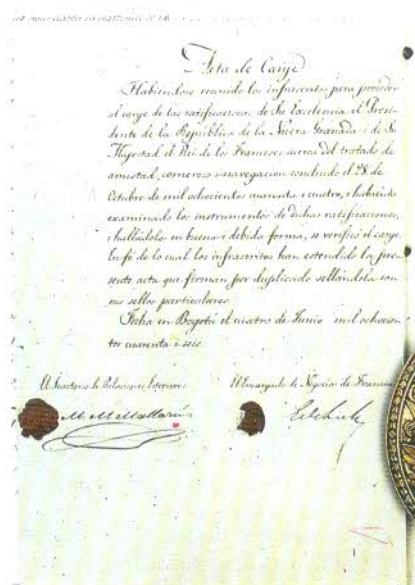 Acta de Cange
Habiéndose reunido los infrascritos para proceder
al cange de las ratificaciones de Su Excelencia el Presi-
dente de la República de la Nueva Granada i de Su
Magestad el Rei de los Franceses acerca del tratado de
amistad, comercio i navegacion concluido el 28 de
Octubre de mil ochocientos cuarenta i cuatro, i habiendo
examinado los instrumentos de dichas ratificaciones,
i halládolos en buena i debida forma, se verificó el cange.
En fé de lo cual los infrascritos han estendido la pre-
sente acta que firman por duplicado sellándola con
sus sellos particulares.
Fecha en Bogotá el cuatro de Junio mil ochocien-
tos cuarenta i seis.
El Secretario de Relaciones Esteriores
El Encargado de Negocios de Francia
M. M. Mallarino